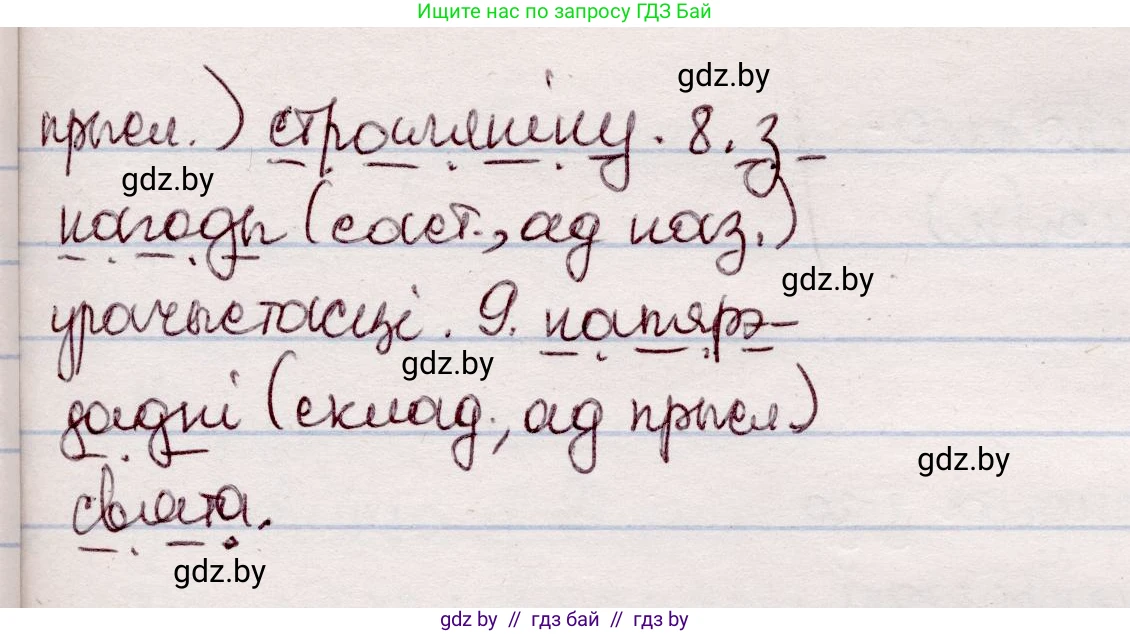 Ищите нас по запросу ГДЗ Бай
gdz.by
прысл.) страмляніну. 8. З
gdz.by
нагоды (саст., ад наз.)
gdz.by
урачыстасці. 9. напярэ-
gdz.by
дадні (склад., ад прысл.)
gdz.by
свята.
gdz.by
gdz by // гдз бай // gdz by